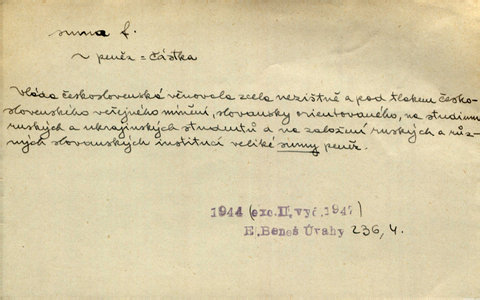 suma f.
~ peněz = částka
Vláda československá věnovala zcela nezištně a pod tlakem česko-
slovenského veřejného mínění, slovansky orientovaného, na studium
ruských a ukrajinských studentů a na založení ruských a růz-
ných slovanských institucí veliké sumy peněz.
1944 (exc. II. vyd. 1947)
E. Beneš Úvahy 236, 4.